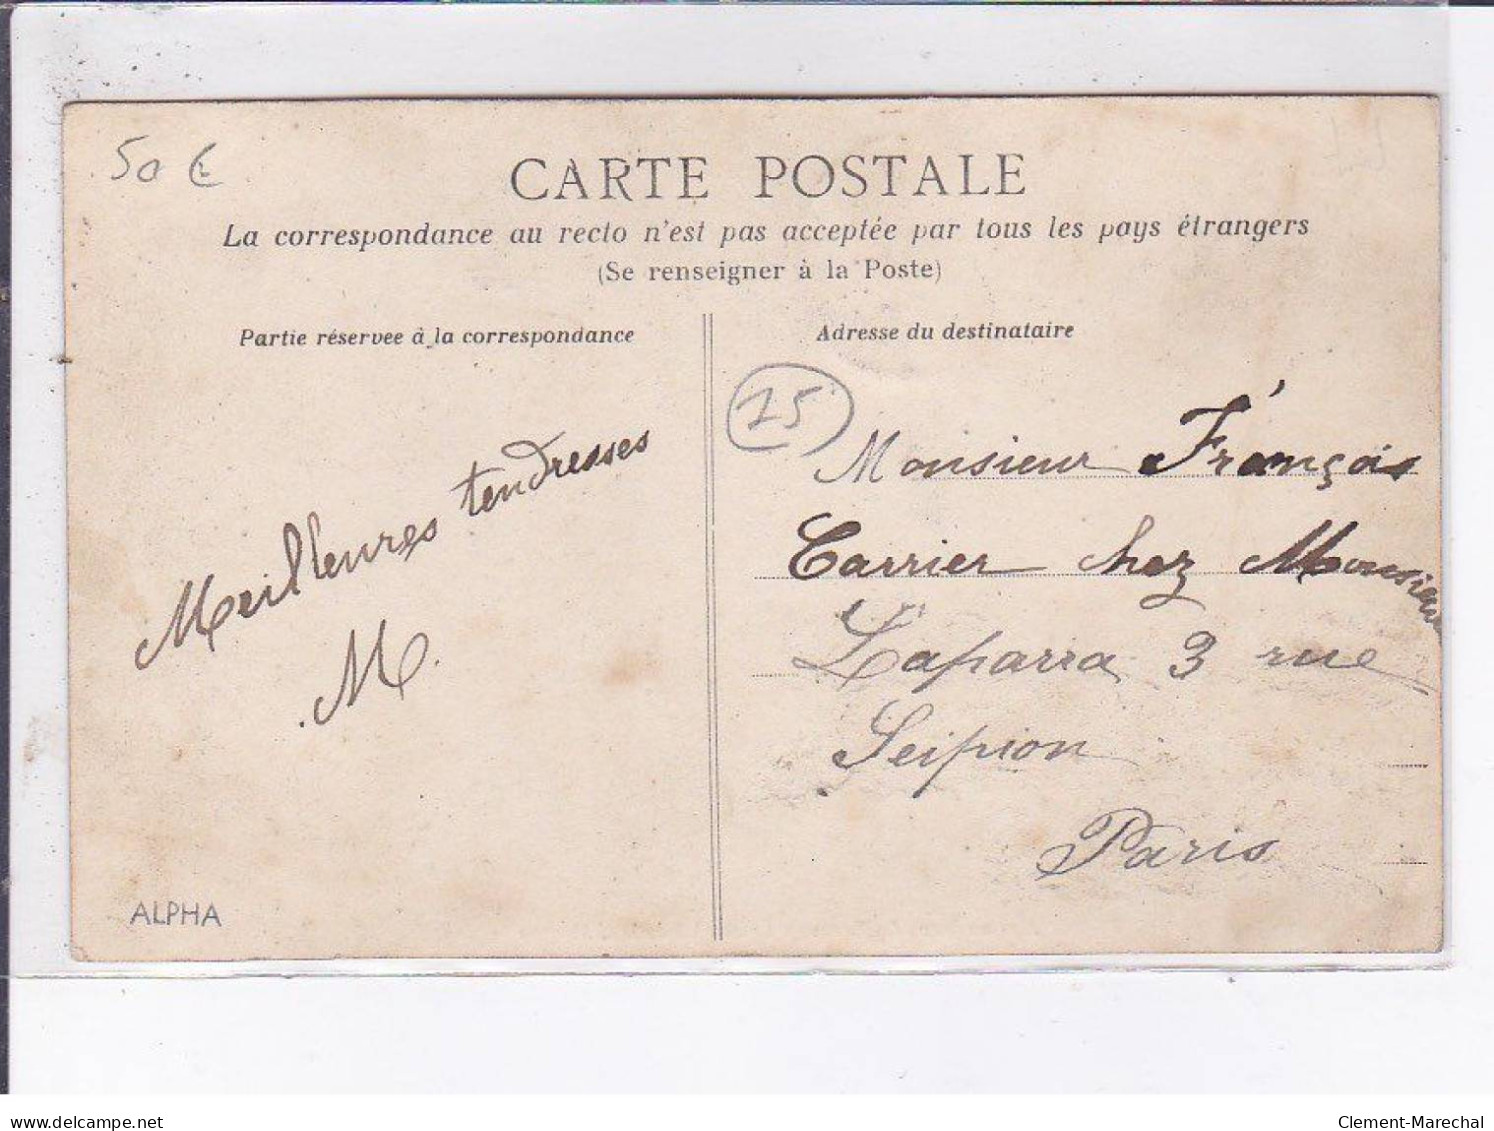 50 €
CARTE POSTALE
La correspondance au recto n'est pas acceptée par tous les pays étrangers
(Se renseigner à la Poste)
Partie réservee à la correspondance
Adresse du destinataire
75
Meilleures tendresses
M.
Monsieur François
Carrier chez Monsieur
Laparra 3 rue
Scipion
Paris
ALPHA
delcampe.net
Clement-Marechal